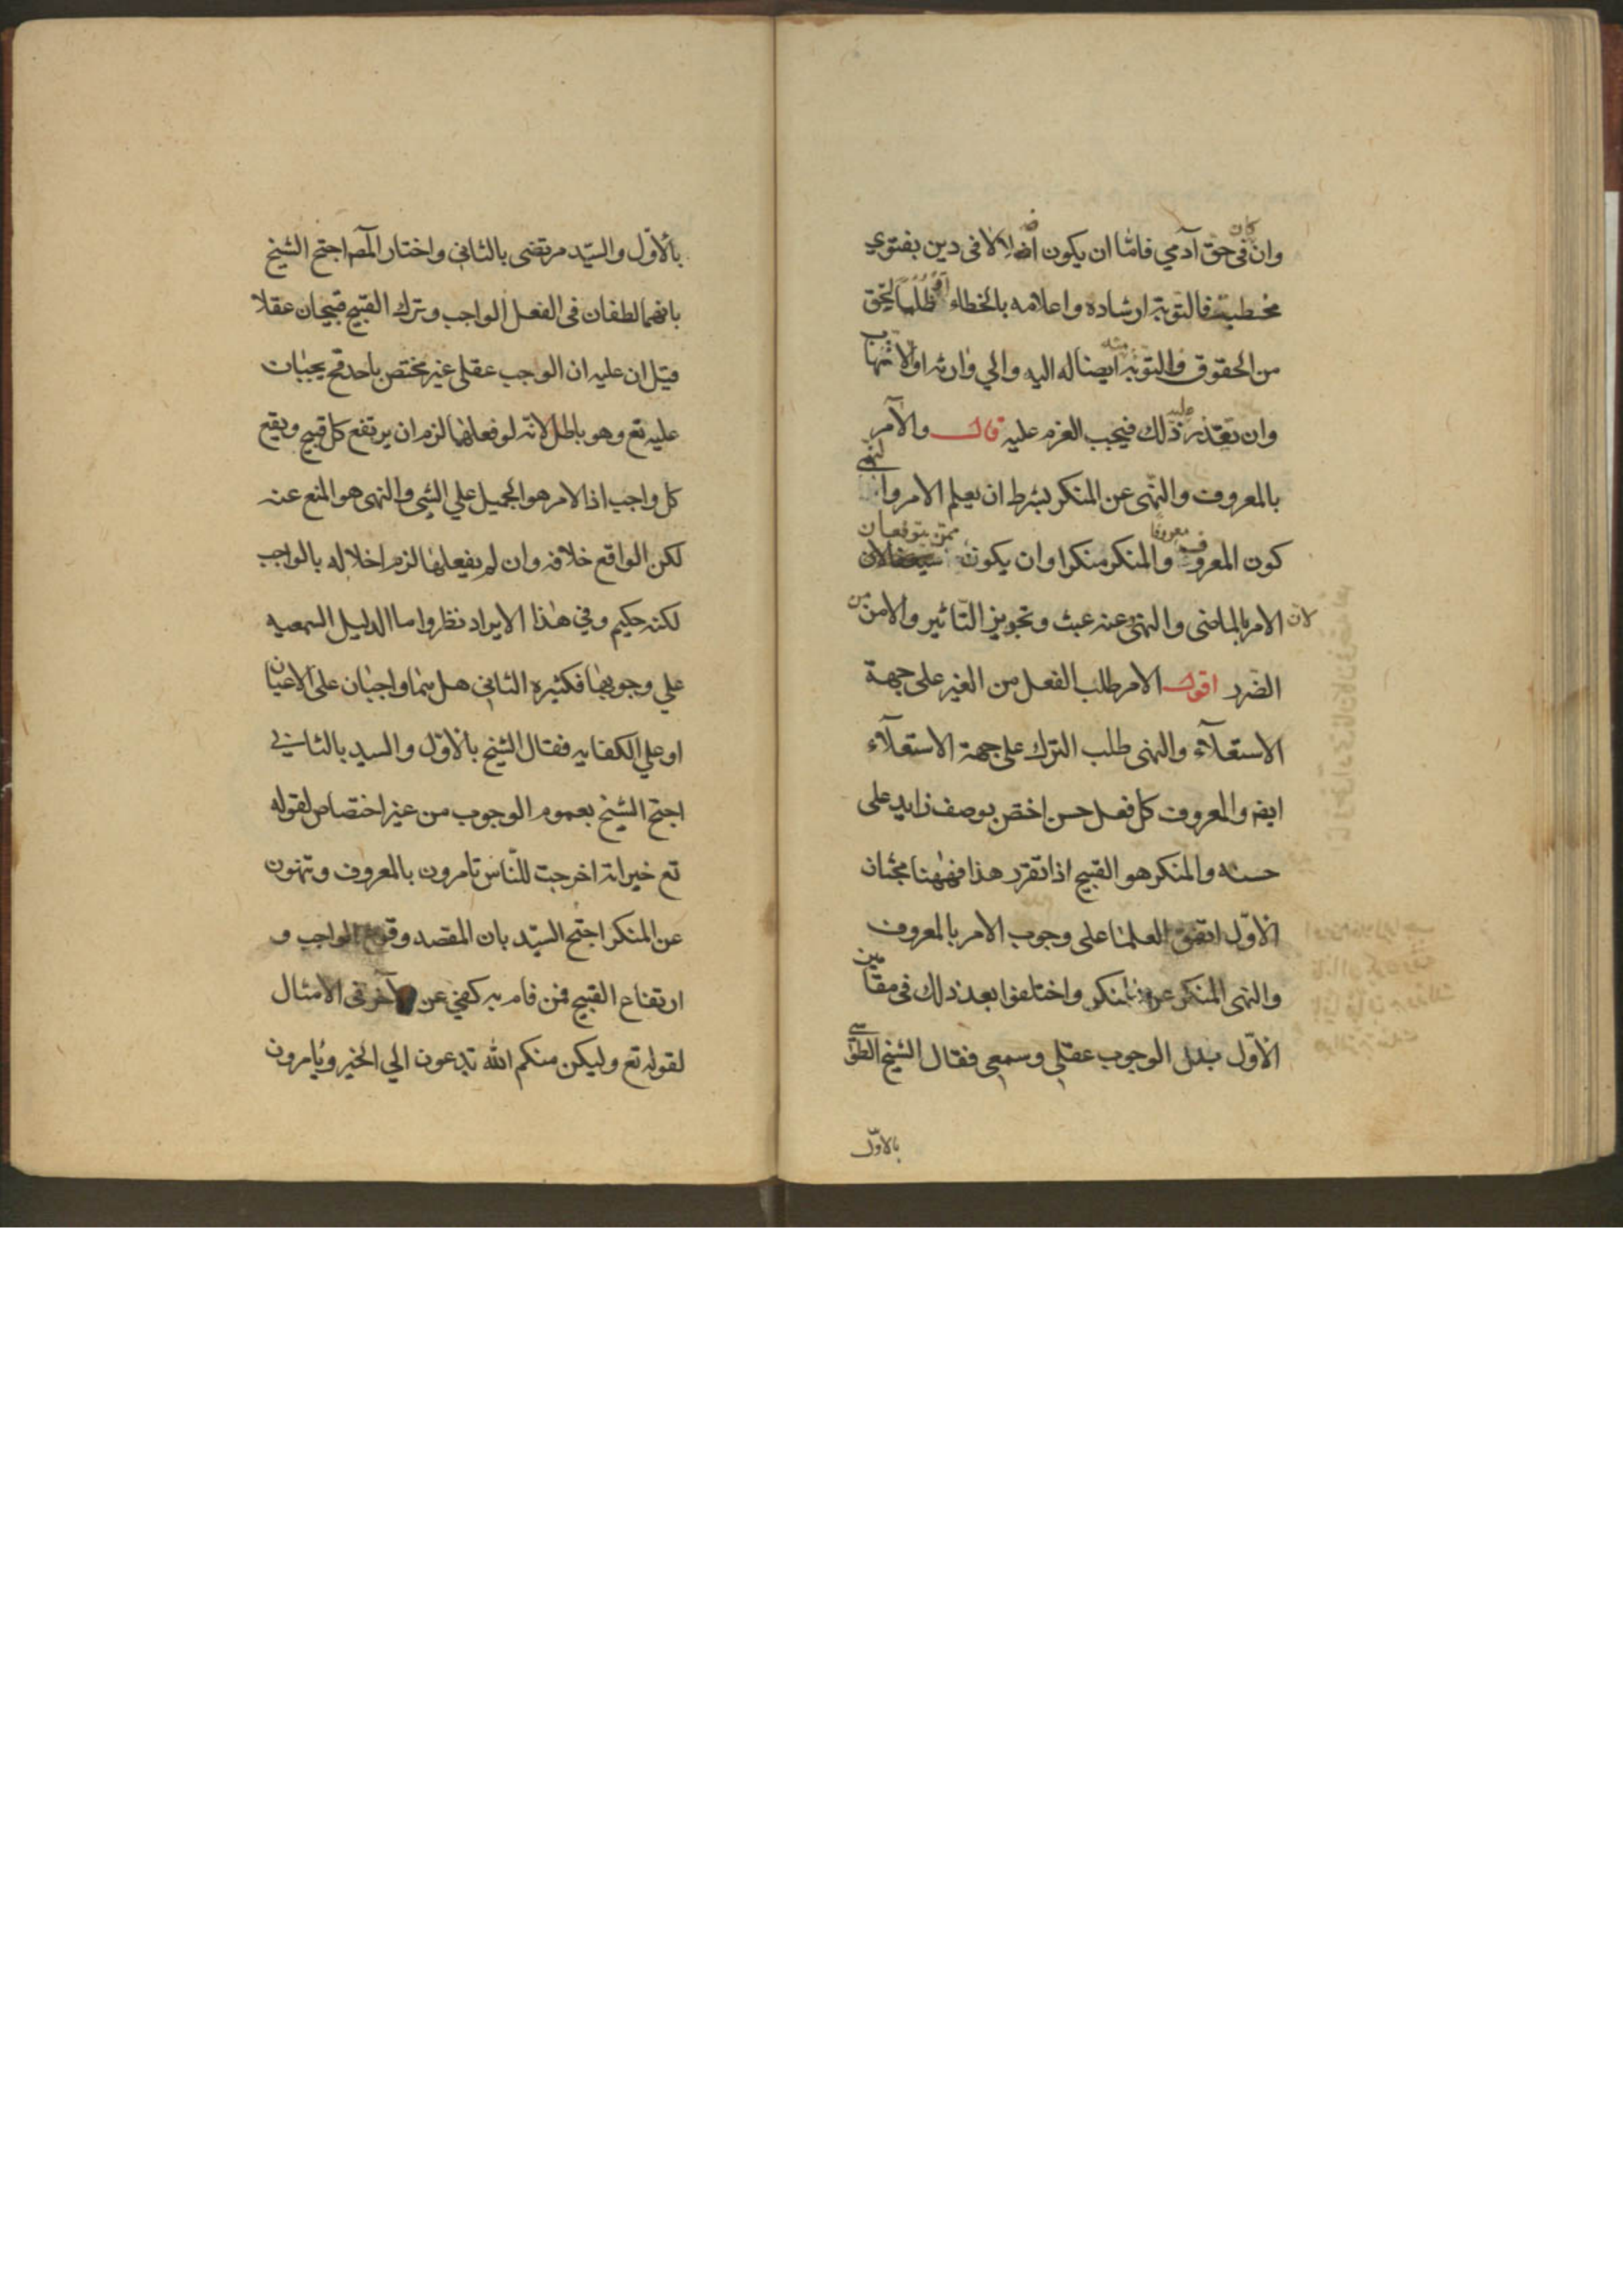 وان كان فى حق آدمي فاما ان يكون اضلالا فى دين بفتوى
مخطية فالتوبة ارشاده واعلامه بالخطاء او ظلما لحق
من الحقوق والتوبة منه ايصاله اليه والي وارثه او الاتهاب
وان تعذر عليه ذلك فيجب العزم عليه قال والامر
بالمعروف والنهى عن المنكر بشرط ان يعلم الامر والنهى
كون المعروف معروفا والمنكر منكرا وان يكون مما سيقعان
لان الامر بالماضى والنهى عنه عبث وتجويز التاثير والامن من
الضرر اقول الامر طلب الفعل من الغير على جهة
الاستعلآء والنهى طلب الترك على جهة الاستعلآء
ايضا والمعروف كل فعل حسن اختص بوصف زايد على
حسنه والمنكر هو القبيح اذا تقرر هذا فههنا بحثان
الاول اتفق العلما على وجوب الامر بالمعروف
والنهى عن المنكر واختلفوا بعد ذلك فى مقامين
الاول هل الوجوب عقلي وسمعي فقال الشيخ الطوسي
بالاول
بالاول والسيد مرتضى بالثانى واختار المص احتج الشيخ
بانهما لطفان فى الفعل الواجب وترك القبيح فيجبان عقلا
قيل ان عليه ان الوجب عقلي غير مختص باحد فح يجبان
عليه تع وهو باطل لانه لو فعلهما لزم ان يرتفع كل قبيح ويقع
كل واجب اذ الامر هو الحميل علي الشى والنهى هو المنع عنه
لكن الواقع خلافه وان لم يفعلهما لزم اخلاله بالواجب
لكنه حكيم وفي هذا الايراد نظر واما الدليل السمعيه
علي وجوبهما فكثيره الثانى هل هما واجبان على الاعيان
او علي الكفايه فقال الشيخ بالاول والسيد بالثانى
احتج الشيخ بعموم الوجوب من غير اختصاص لقوله
تع خير امة اخرجت للناس تامرون بالمعروف وتنهون
عن المنكر احتج السيد بان المقصد وقوع الواجب و
ارتفاع القبيح فمن قام به كفي عن الآخر فى الامتثال
لقوله تع وليكن منكم الله تدعون الي الخير ويامرون